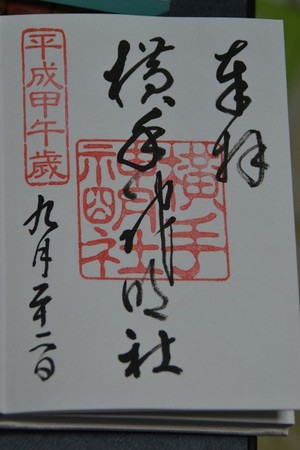 奉拝
横手神明社
横手
平成甲午歳
九月二十二日